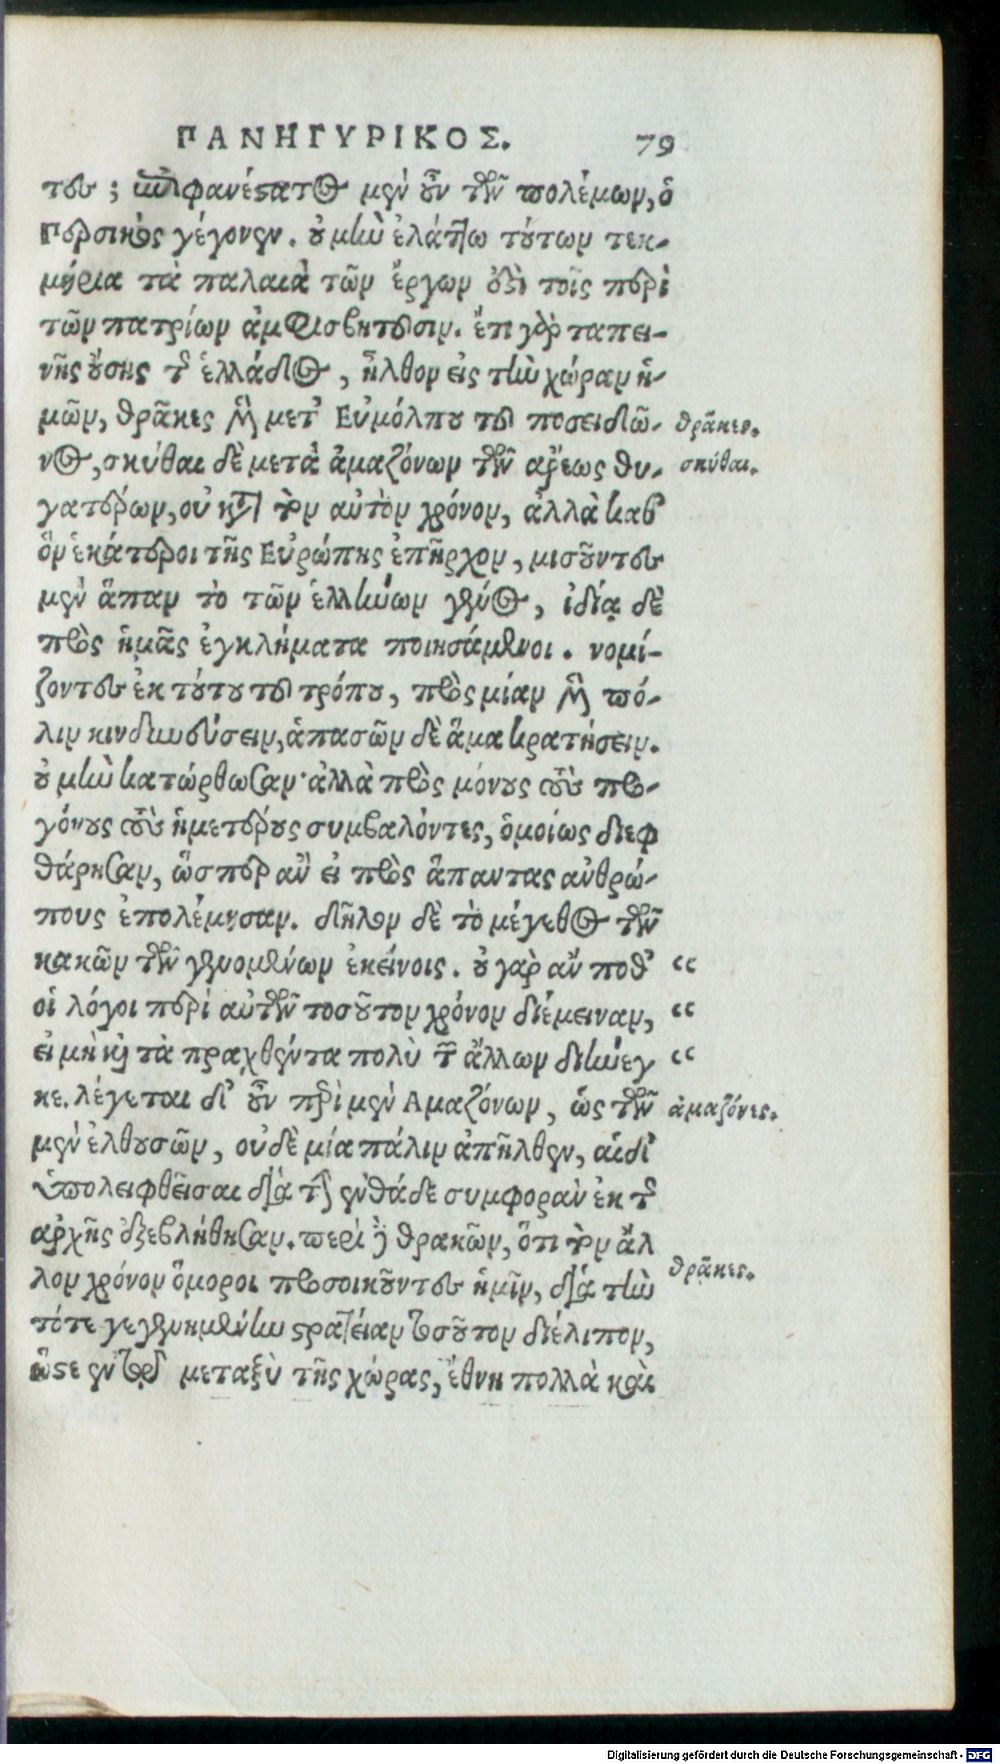 ΠΑΝΗΓΥΡΙΚΟΣ. 79
τες; ἐπιφανέστατος μὲν οὖν τῶν πολέμων, ὁ
Περσικὸς γέγονεν. οὐ μὴν ἐλάττω τούτων τεκ-
μήρια τὰ παλαιὰ τῶν ἔργων ἐξὶ τοῖς περὶ
τῶν πατρίων ἀμφισβητοῦσιν. ἔτι γὰρ ταπει-
νῆς οὔσης τῆς ἑλλάδος, ἦλθον εἰς τὴν χώραν ἡ-
μῶν, θρᾶκες μὲν μετ' Εὐμόλπου τοῦ ποσειδῶ- θρᾶκες.
νος, σκύθαι δὲ μετὰ ἀμαζόνων τῶν ἄρεως θυ- σκύθαι.
γατέρων, οὐ κατὰ τὸν αὐτὸν χρόνον, ἀλλὰ καθ'
ὃν ἑκάτεροι τῆς Εὐρώπης ἐπῆρχον, μισοῦντες
μὲν ἅπαν τὸ τῶν ἑλλήνων γένος, ἰδίᾳ δὲ
πρὸς ἡμᾶς ἐγκλήματα ποιησάμενοι. νομί-
ζοντες ἐκ τούτου τοῦ τρόπου, πρὸς μίαν μὲν πό-
λιν κινδυνεύσειν, ἁπασῶν δὲ ἅμα κρατήσειν.
οὐ μὴν κατώρθωσαν· ἀλλὰ πρὸς μόνους τοὺς προ-
γόνους τοὺς ἡμετέρους συμβαλόντες, ὁμοίως διεφ
θάρησαν, ὥσπερ ἂν εἰ πρὸς ἅπαντας ἀνθρώ-
πους ἐπολέμησαν. δῆλον δὲ τὸ μέγεθος τῶν
κακῶν τῶν γενομένων ἐκείνοις. οὐ γὰρ ἄν ποθ' “
οἱ λόγοι περὶ αὐτῶν τοσοῦτον χρόνον διέμειναν, “
εἰ μὴ καὶ τὰ πραχθέντα πολὺ τῶν ἄλλων διήνεγ “
κε. λέγεται δ' οὖν περὶ μὲν Αμαζόνων, ὡς τῶν ἀμαζόνες.
μὲν ἐλθουσῶν, οὐδὲ μία πάλιν ἀπῆλθεν, αἱ δ'
ὑπολειφθεῖσαι διὰ τὴν ἐνθάδε συμφορὰν ἐκ τῆς
ἀρχῆς ἐξεβλήθησαν. περὶ δὲ θρακῶν, ὅτι τὸν ἄλ
λον χρόνον ὅμοροι προσοικοῦντες ἡμῖν, διὰ τὴν θρᾶκες.
τότε γεγενημένην στρατείαν τοσοῦτον διέλιπον,
ὥστε ἐν τῷ μεταξὺ τῆς χώρας, ἔθνη πολλὰ καὶ
Digitalisierung gefördert durch die Deutsche Forschungsgemeinschaft - DFG